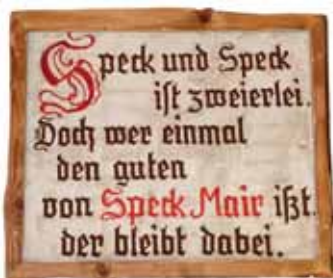 Speck und Speck
ist zweierlei.
Doch wer einmal
den guten
von Speck Mair ißt.
der bleibt dabei.